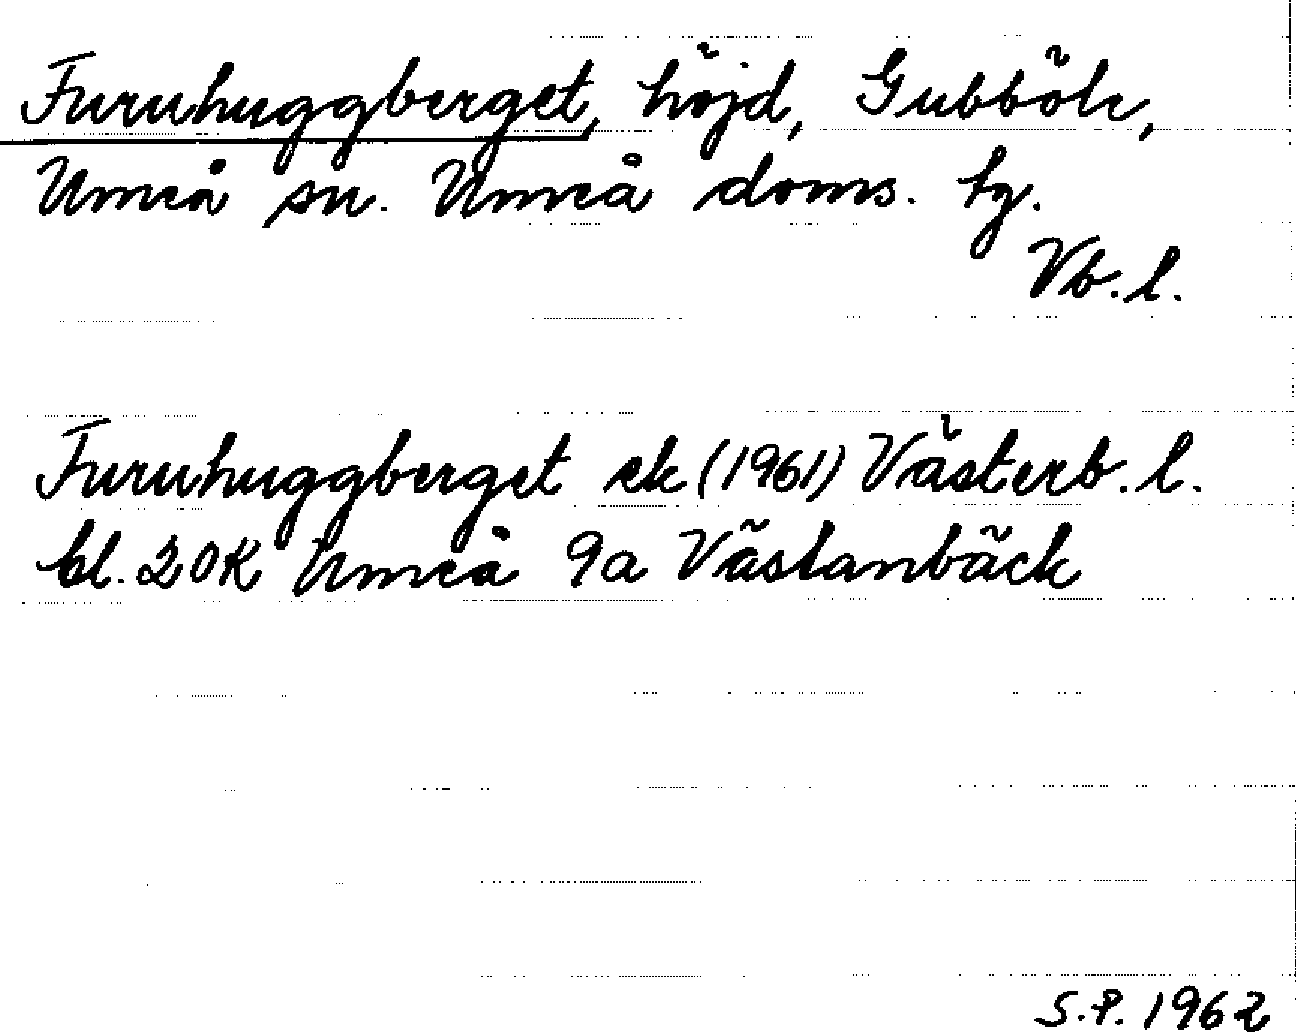 Furuhuggberget, höjd, Gubböle,
Umeå sn. Umeå doms. tg.
Vb.l.
Furuhuggberget ek (1961) Västerb.l.
bl. 20K Umeå 9a Västanbäck
S.P. 1962